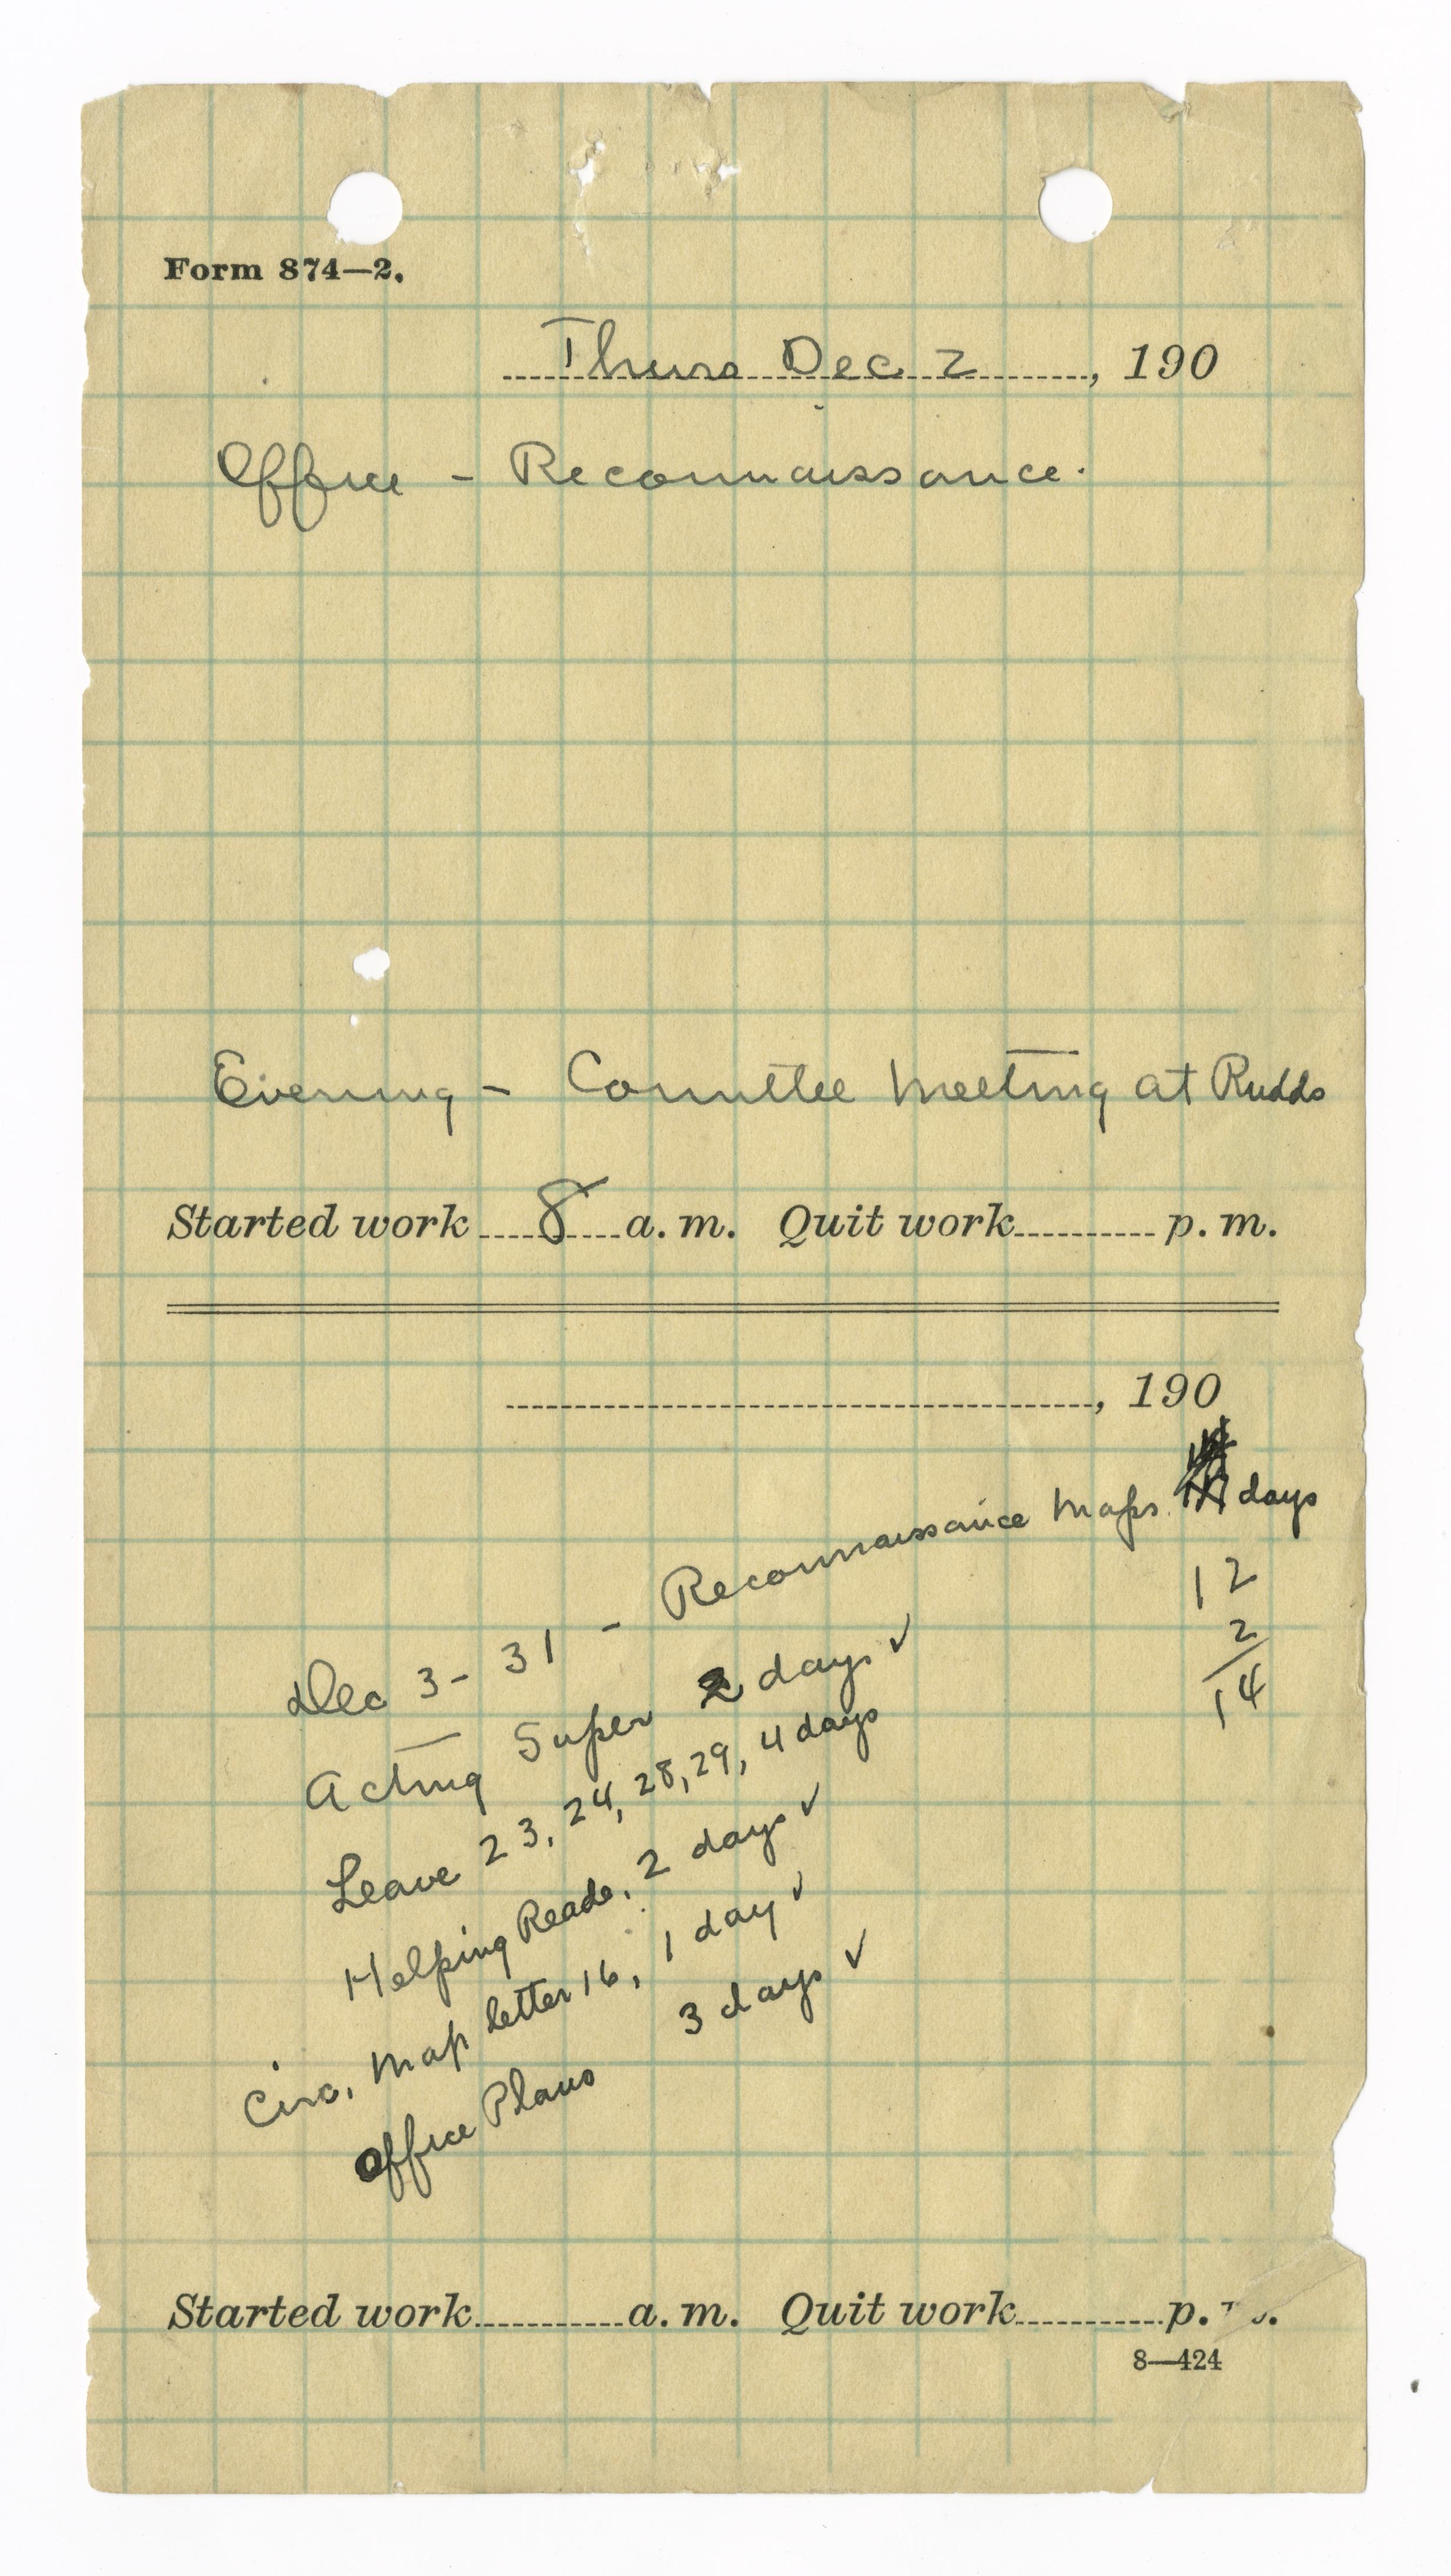 Form 874—2.
Thurs Dec 2, 190
Office - Reconnaissance.
Evening - Comittee meeting at Rudds
Started work 8 a.m. Quit work p.m.
, 190
Dec 3 - 31 - Reconnaissance maps days
12
2
14
Acting Super 2 days ✓
Leave 23, 24, 28, 29, 4 days
Helping Reade, 2 days ✓
Circ, map letter 16, 1 day ✓
Office Plans 3 days ✓
Started work a.m. Quit work p.
8—424